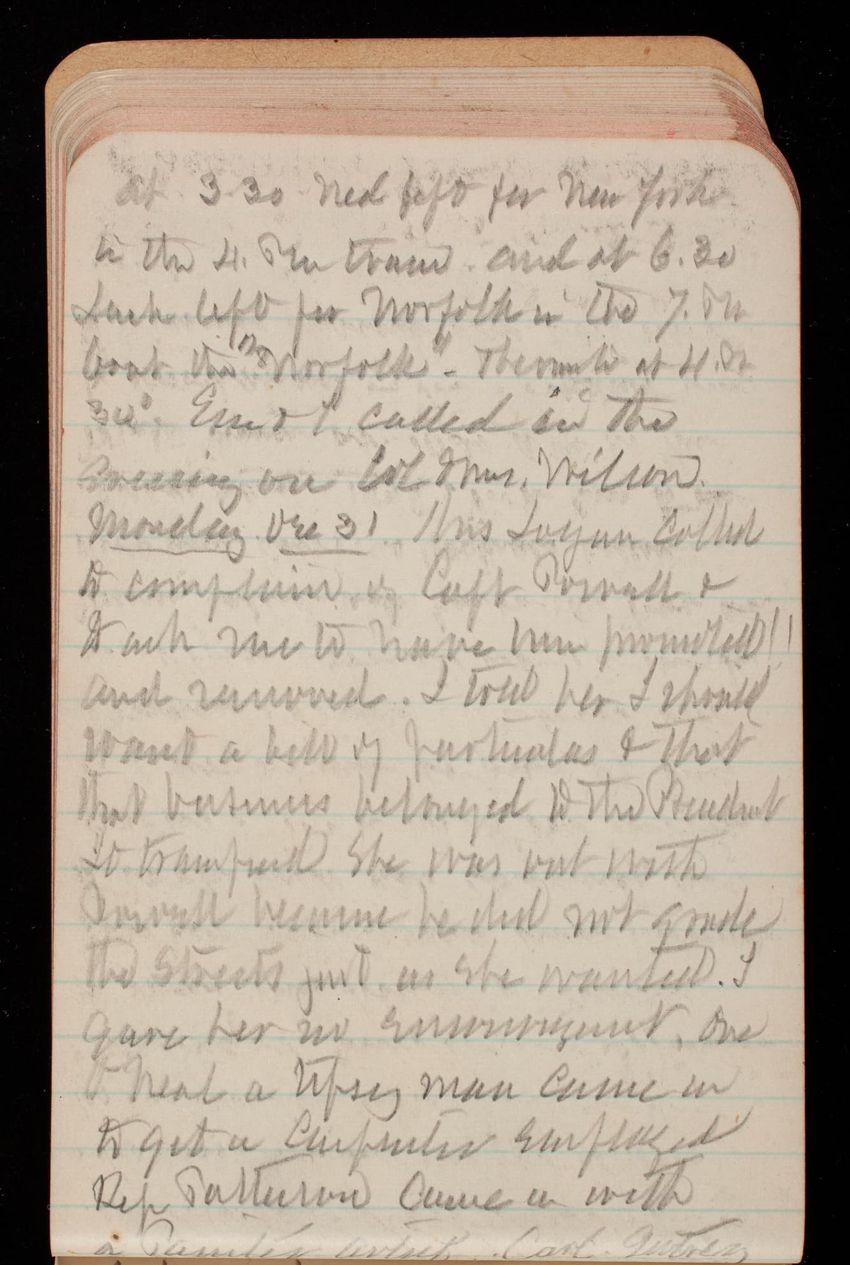 At 3.30 Ned left for New York
in the 4. PM train and at 6.30
Jack left for Norfolk in the 7. PM
boat the "Norfolk" - Thermometer at 4. PM
34°. Em & I called in the
evening on Col & Mrs. Wilson.
Monday Dec 31 Mrs Logan called
to complain of Capt Powell &
to ask me to have him promoted!!
and removed. I told her I should
want a bill of particulars & that
that business belonged to the President
She was out with
Powell because he did not grade
the Streets just as she wanted. I
gave her no encouragement.
a tipsy man came in
to get a Carpenter employed
Rep Patterson came in with
a artist Carl Gutherz